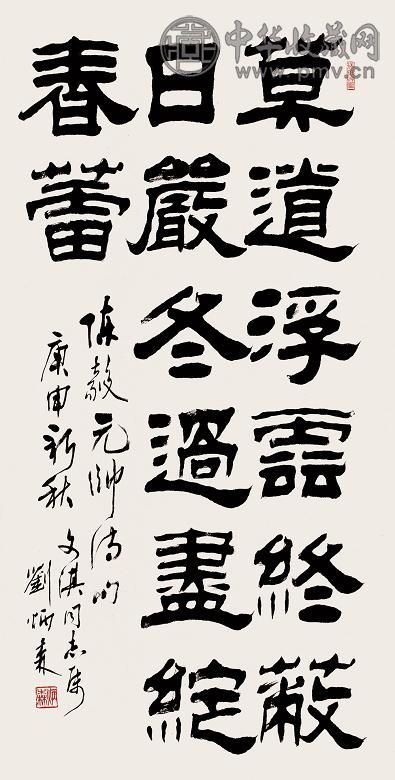 中华收藏网
www.pmv.cn
莫道浮雲終蔽
日嚴冬過盡綻
春蕾
陳毅元帥詩句
庚申新秋
文淇同志属
劉炳森